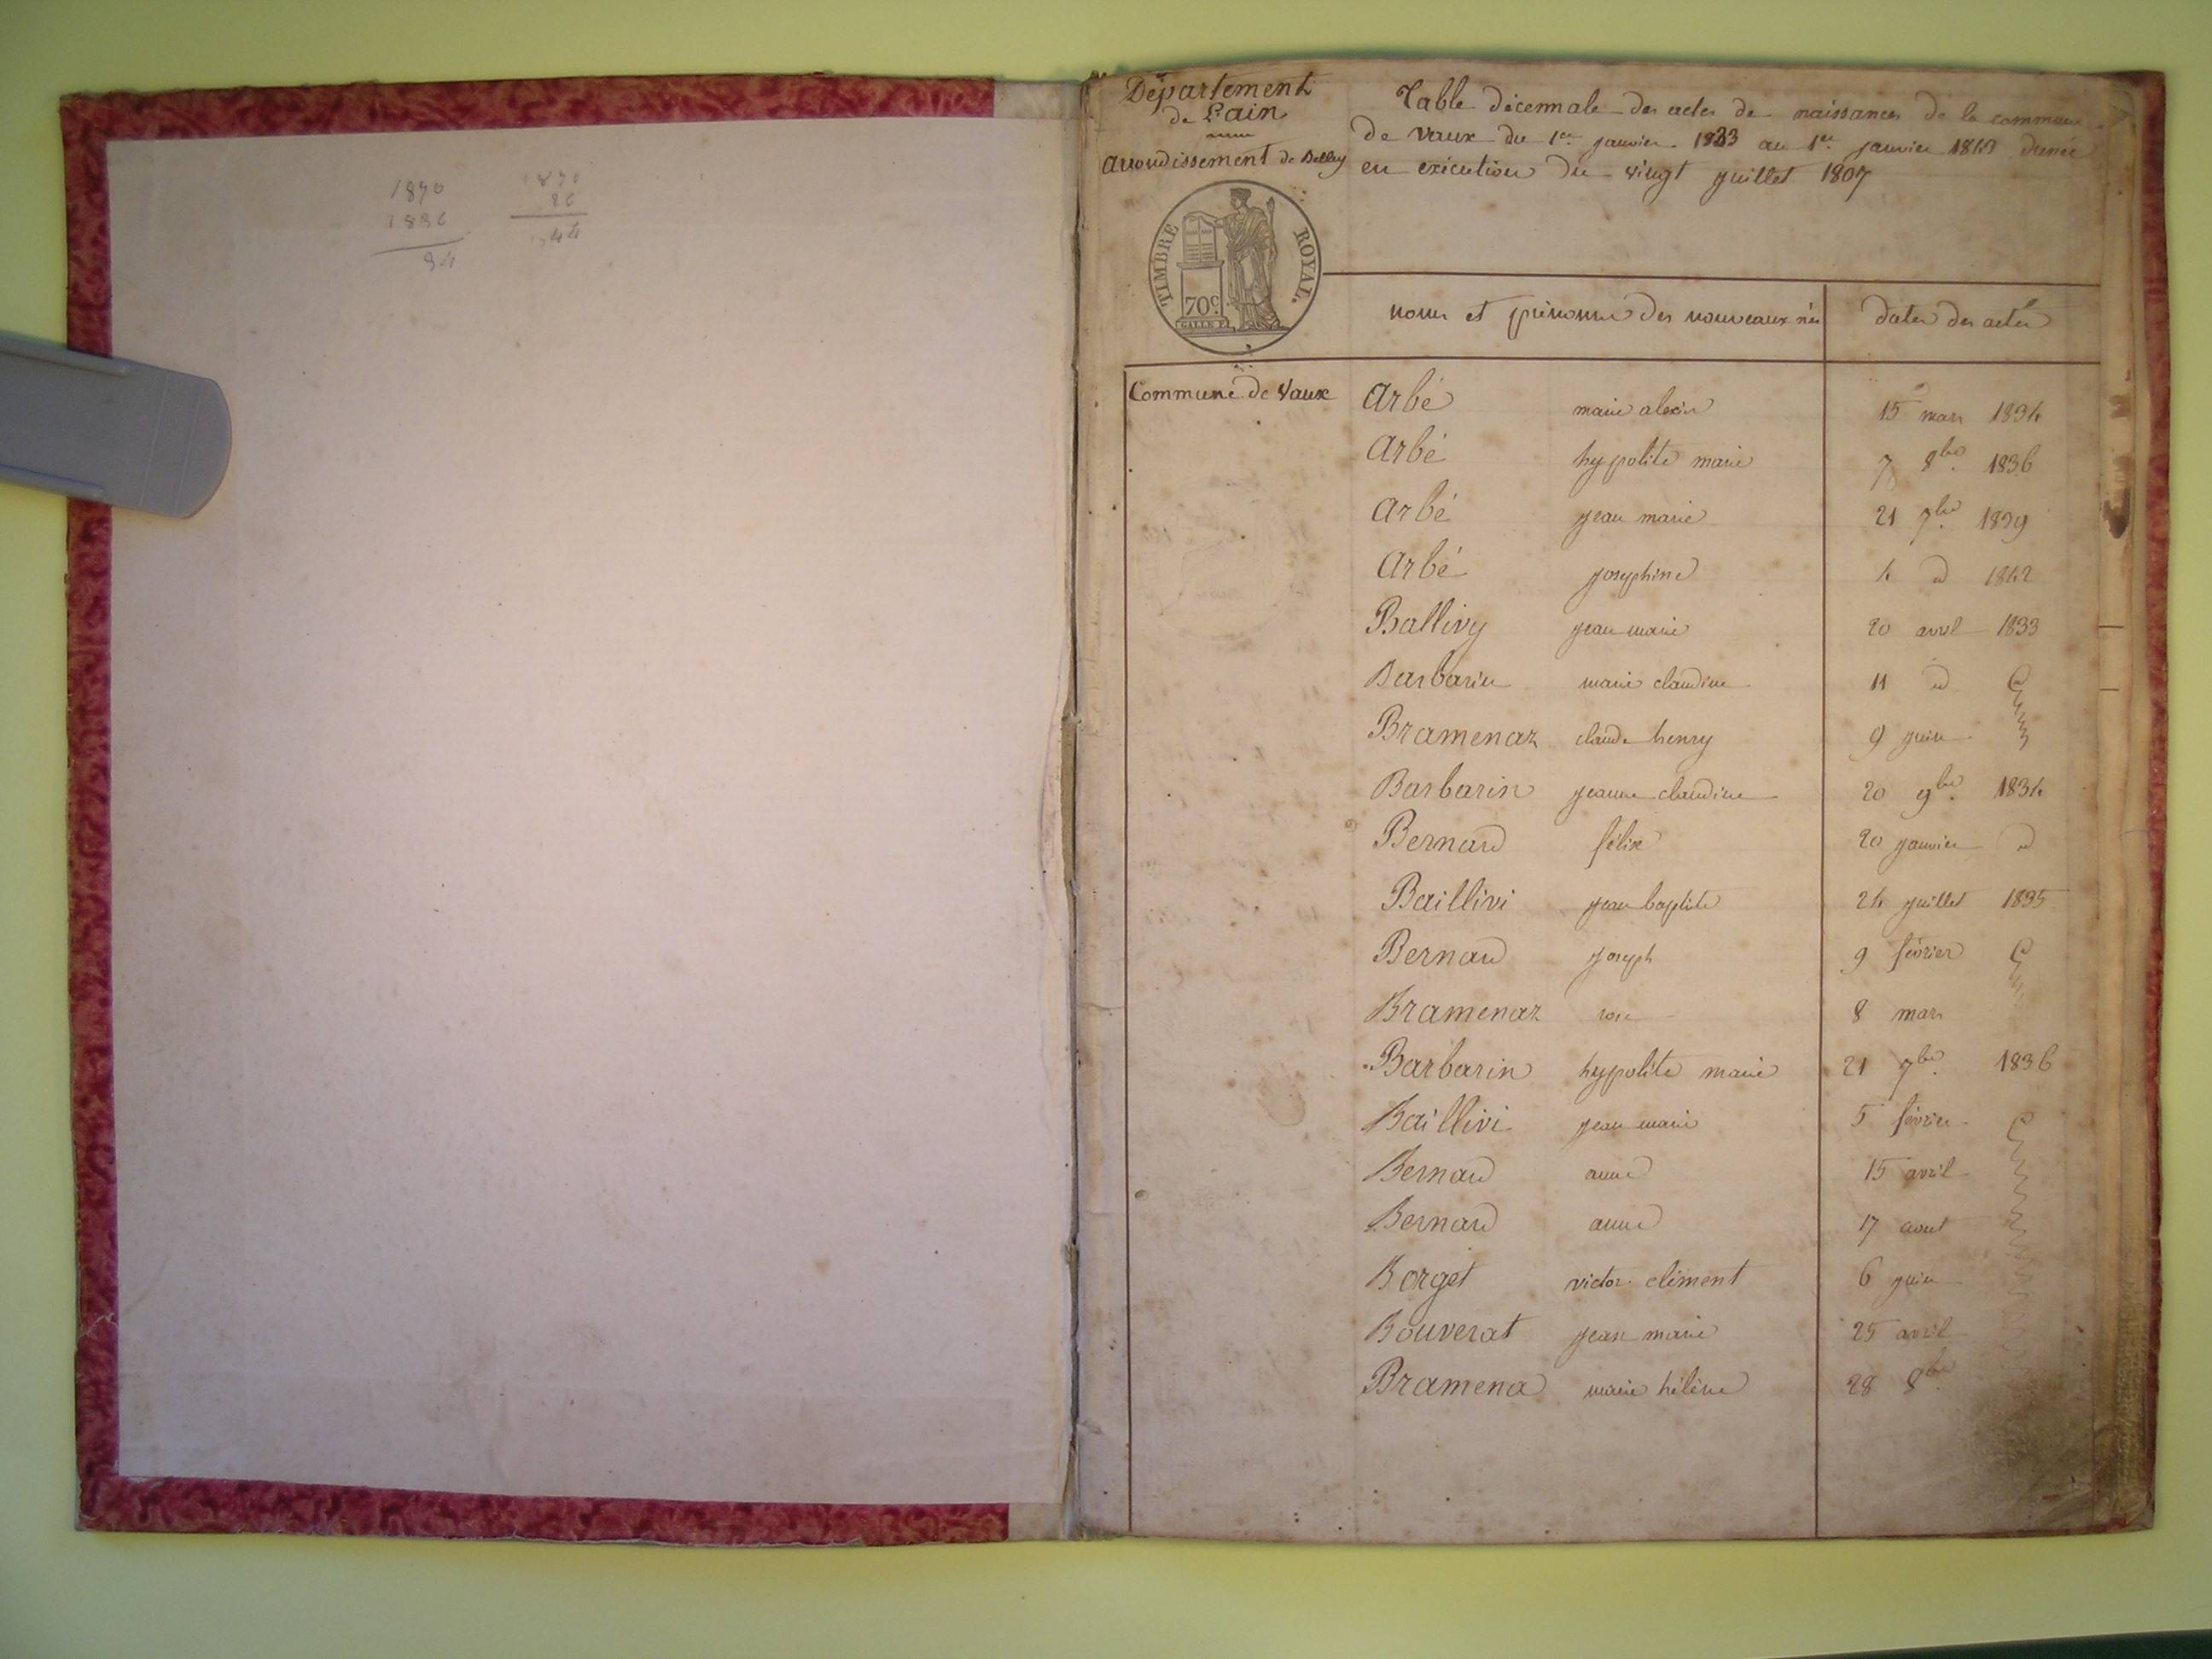 1840
1836
Département
de L'ain
arrondissement de Belley
Table décennale des actes de naissances de la commune
de Vaux du 1er janvier 1833 au 1er janvier 1843
en exécution du vingt juillet 1807
TIMBRE ROYAL.
70c
GALLE F.
noms et prénoms des nouveaux nés dates des actes
Commune de Vaux
arbé marie alexis 15 mars 1834
arbé hypolite marie 7 8bre 1836
arbé jean marie 21 7bre 1839
arbé josephine 4 d 1842
Ballivy jean marie 20 avril 1833
Barbarin marie claudine 11 d
Bramenaz claude henry 9 juin
Barbarin jeanne claudine 20 9bre 1834
Bernard félix 20 janvier d
Baillivi jean baptiste 24 juillet 1835
Bernard joseph 9 février
Bramenaz rose 8 mars
Barbarin hypolite marie 21 7bre 1836
Baillivi jean marie 5 février
Bernard anne 15 avril
Bernard anne 17 aout
Borget victor clément 6 juin
Bouverat jean marie 25 avril
Bramena marie hélène 28 8bre